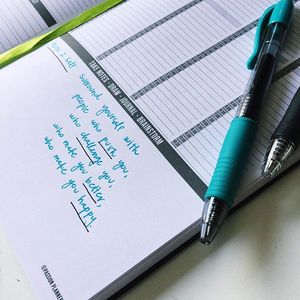 note 2 self
surround yourself with
people who push you,
who challenge you,
who make you better,
who make you happy.
TAKE NOTES · DRAW · JOURNAL · BRAINSTORM
©PASSION PLANNER